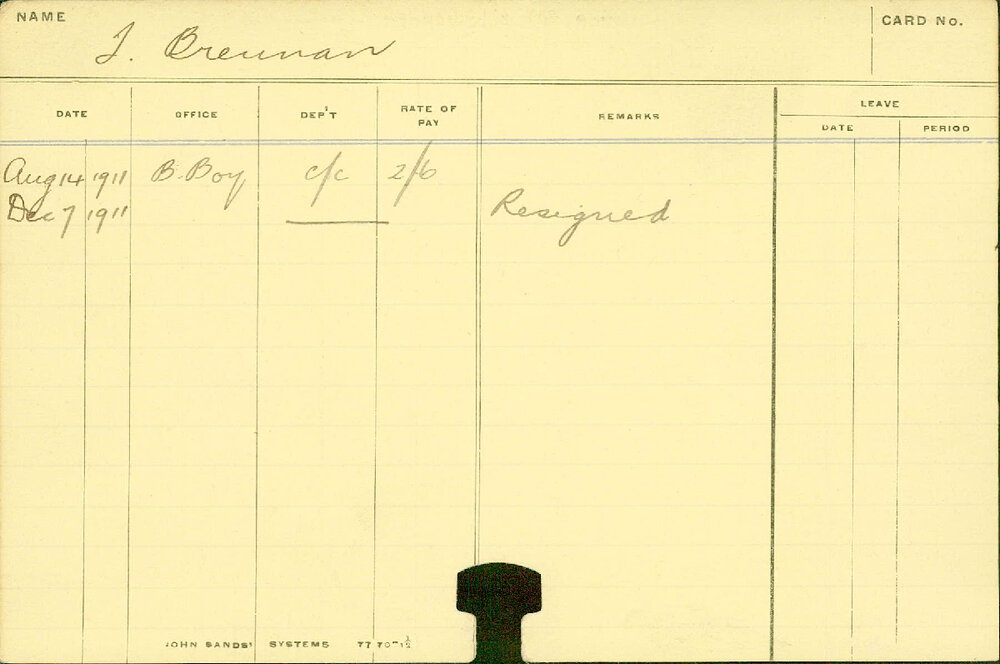 NAME J. Brennan CARD No.
DATE OFFICE DEP'T RATE OF PAY REMARKS LEAVE
DATE PERIOD
Aug 14 1911 B. Boy c/c 2/6
Dec 7 1911 Resigned
JOHN SANDS' SYSTEMS 77 70